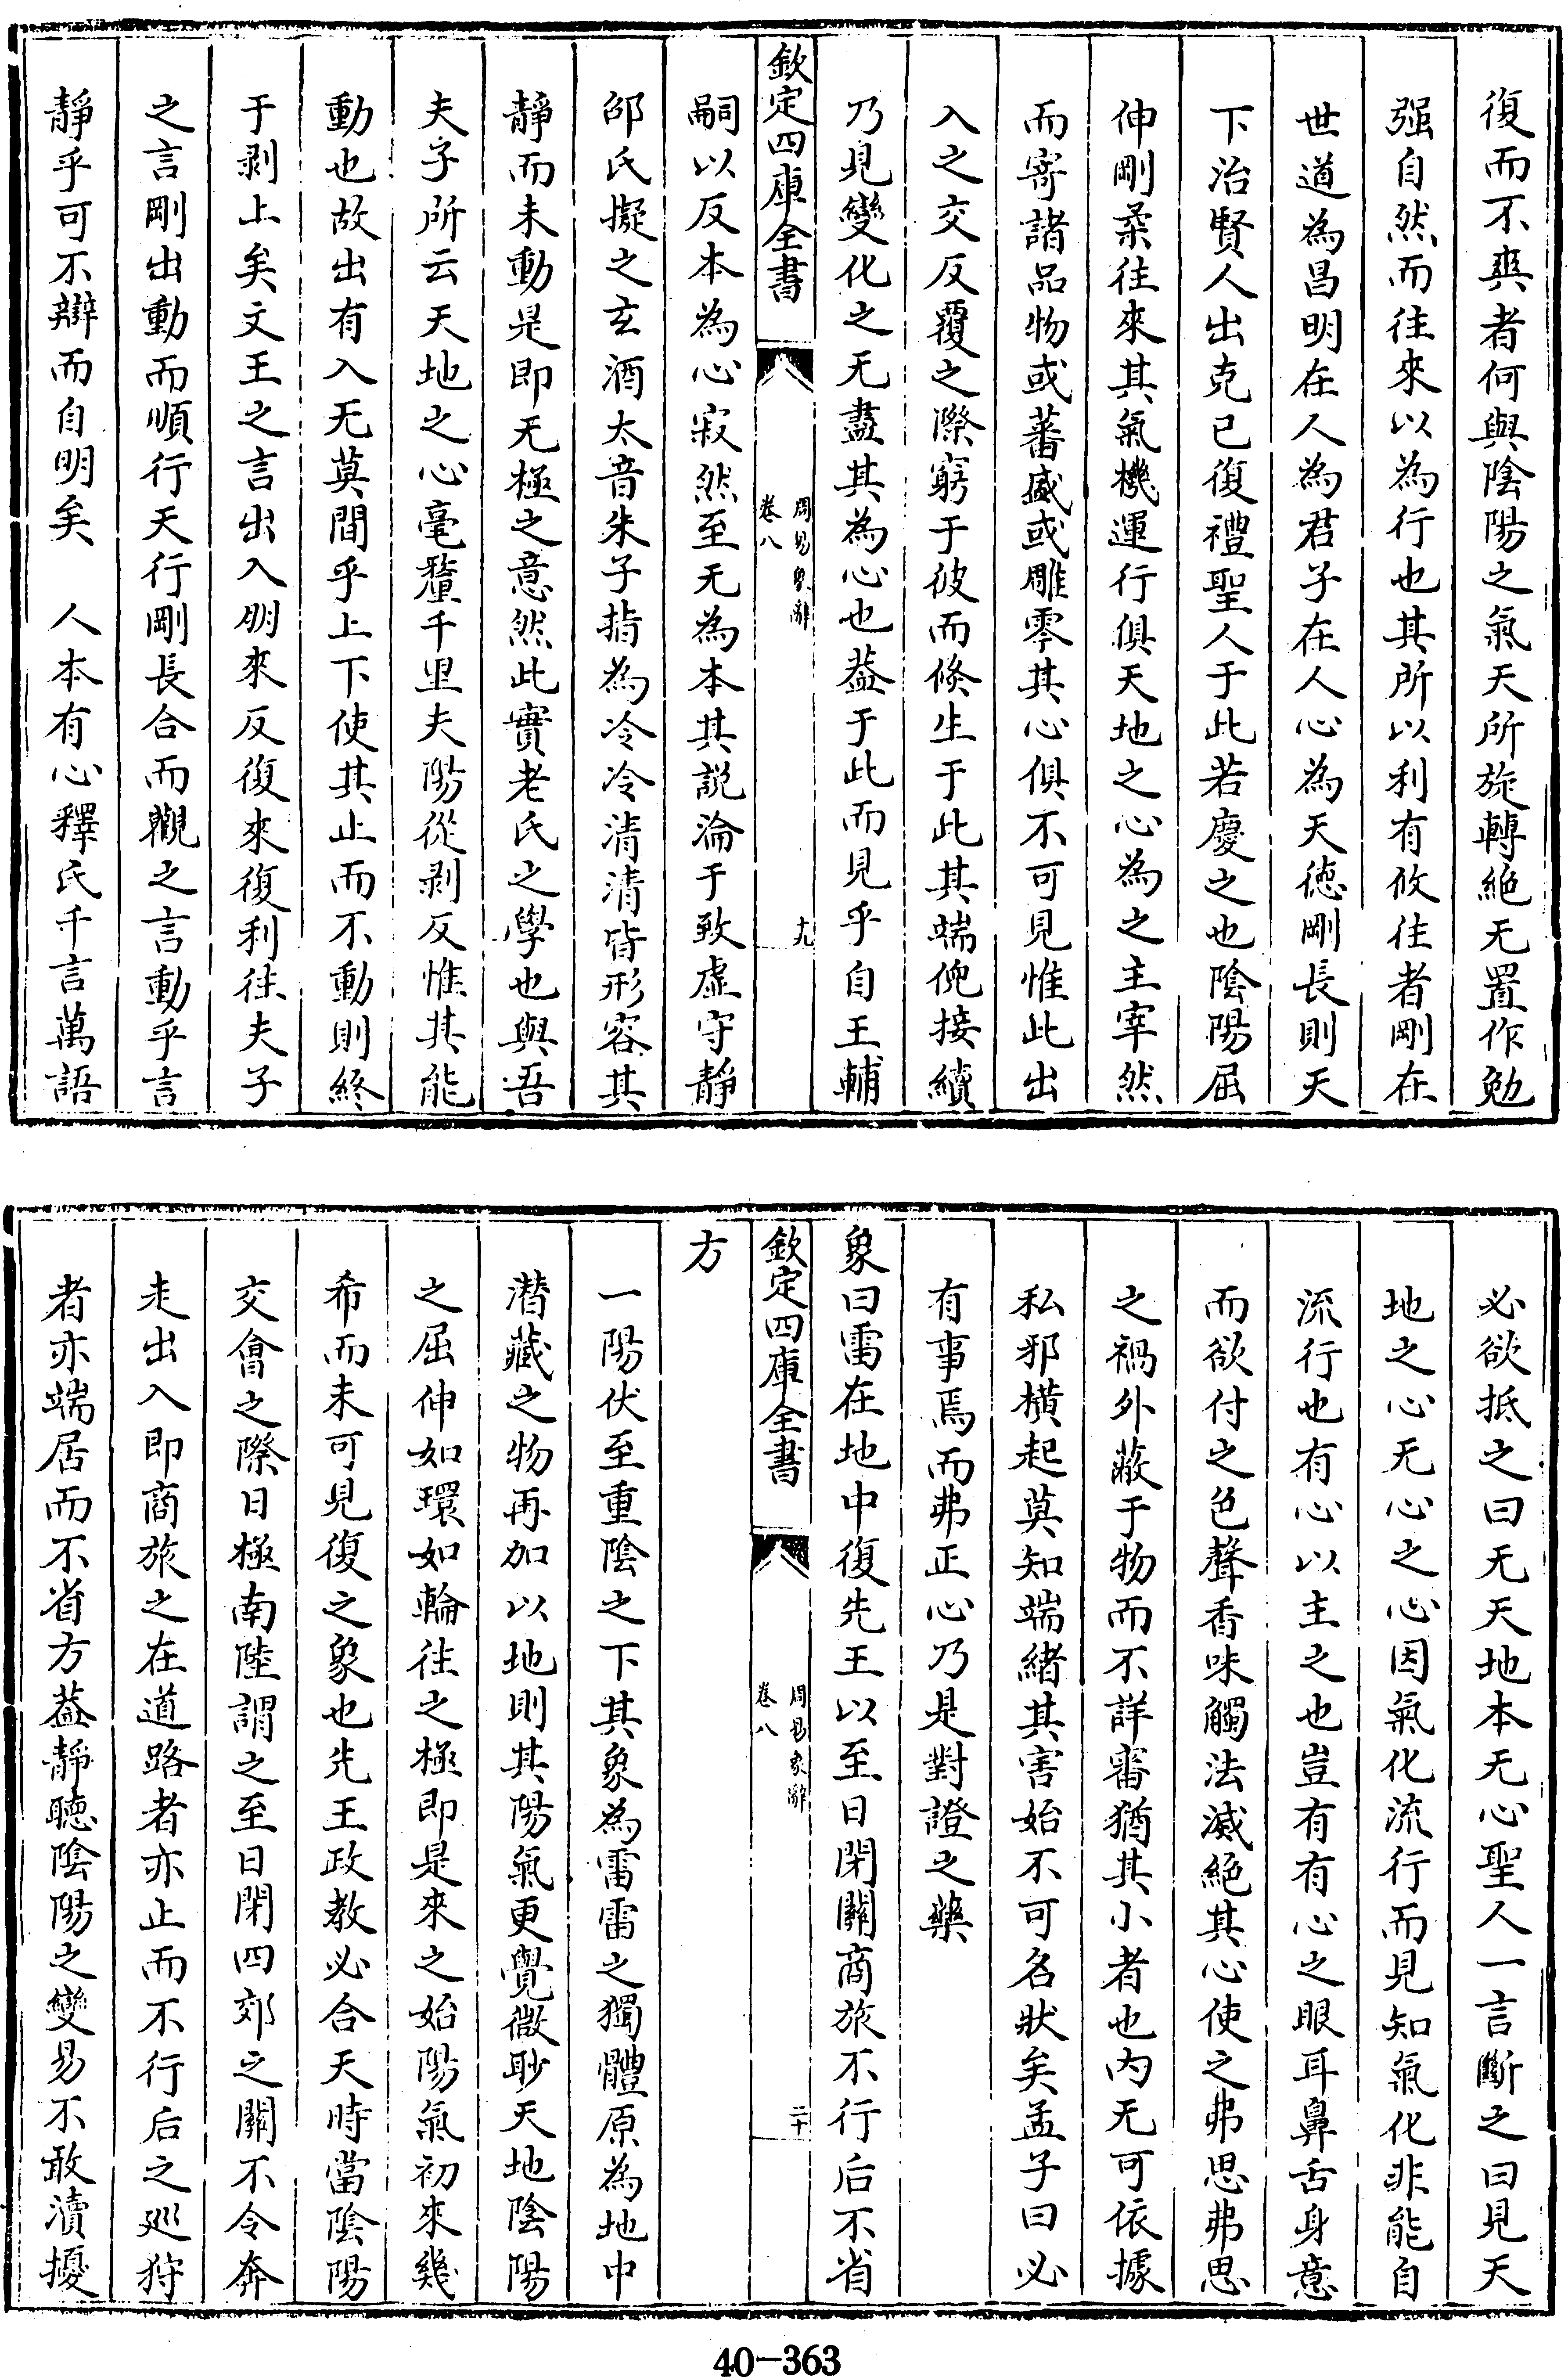 復而不爽者何與陰陽之氣天所旋轉絶无置作勉
强自然而往來以為行也其所以利有攸往者剛在
世道為昌明在人為君子在人心為天徳剛長則天
下治賢人出克已復禮聖人于此若慶之也陰陽屈
伸剛柔往來其氣機運行俱天地之心為之主宰然
而寄諸品物或蕃盛或雕零其心俱不可見惟此出
入之交反覆之際窮于彼而倐生于此其端倪接續
乃見變化之无盡其為心也葢于此而見乎自王輔
欽定四庫全書
周易象辭
卷八
十九
嗣以反本為心寂然至无為本其説淪于致虚守靜
邵氏擬之玄酒太音朱子指為冷冷清清皆形容其
靜而未動是即无極之意然此實老氏之學也與吾
夫子所云天地之心毫釐千里夫陽從剥反惟其能
動也故出有入无莫間乎上下使其止而不動則終
于剥上矣文王之言出入朋來反復來復利往夫子
之言剛出動而順行天行剛長合而觀之言動乎言
靜乎可不辯而自明矣　人本有心釋氏千言萬語
必欲抵之曰无天地本无心聖人一言斷之曰見天
地之心无心之心因氣化流行而見知氣化非能自
流行也有心以主之也豈有有心之眼耳鼻舌身意
而欲付之色聲香味觸法滅絶其心使之弗思弗思
之禍外蔽于物而不詳審猶其小者也内无可依據
私邪横起莫知端緒其害始不可名狀矣孟子曰必
有事焉而弗正心乃是對證之藥
象曰雷在地中復先王以至日閉關商旅不行后不省
欽定四庫全書
周易象辭
卷八
二十
方
一陽伏至重陰之下其象為雷雷之獨體原為地中
潛藏之物再加以地則其陽氣更覺微眇天地陰陽
之屈伸如環如輪往之極即是來之始陽氣初來幾
希而未可見復之象也先王政教必合天時當陰陽
交會之際日極南陸謂之至日閉四郊之關不令奔
走出入即商旅之在道路者亦止而不行后之廵狩
者亦端居而不省方葢靜聽陰陽之變易不敢瀆擾
40-363